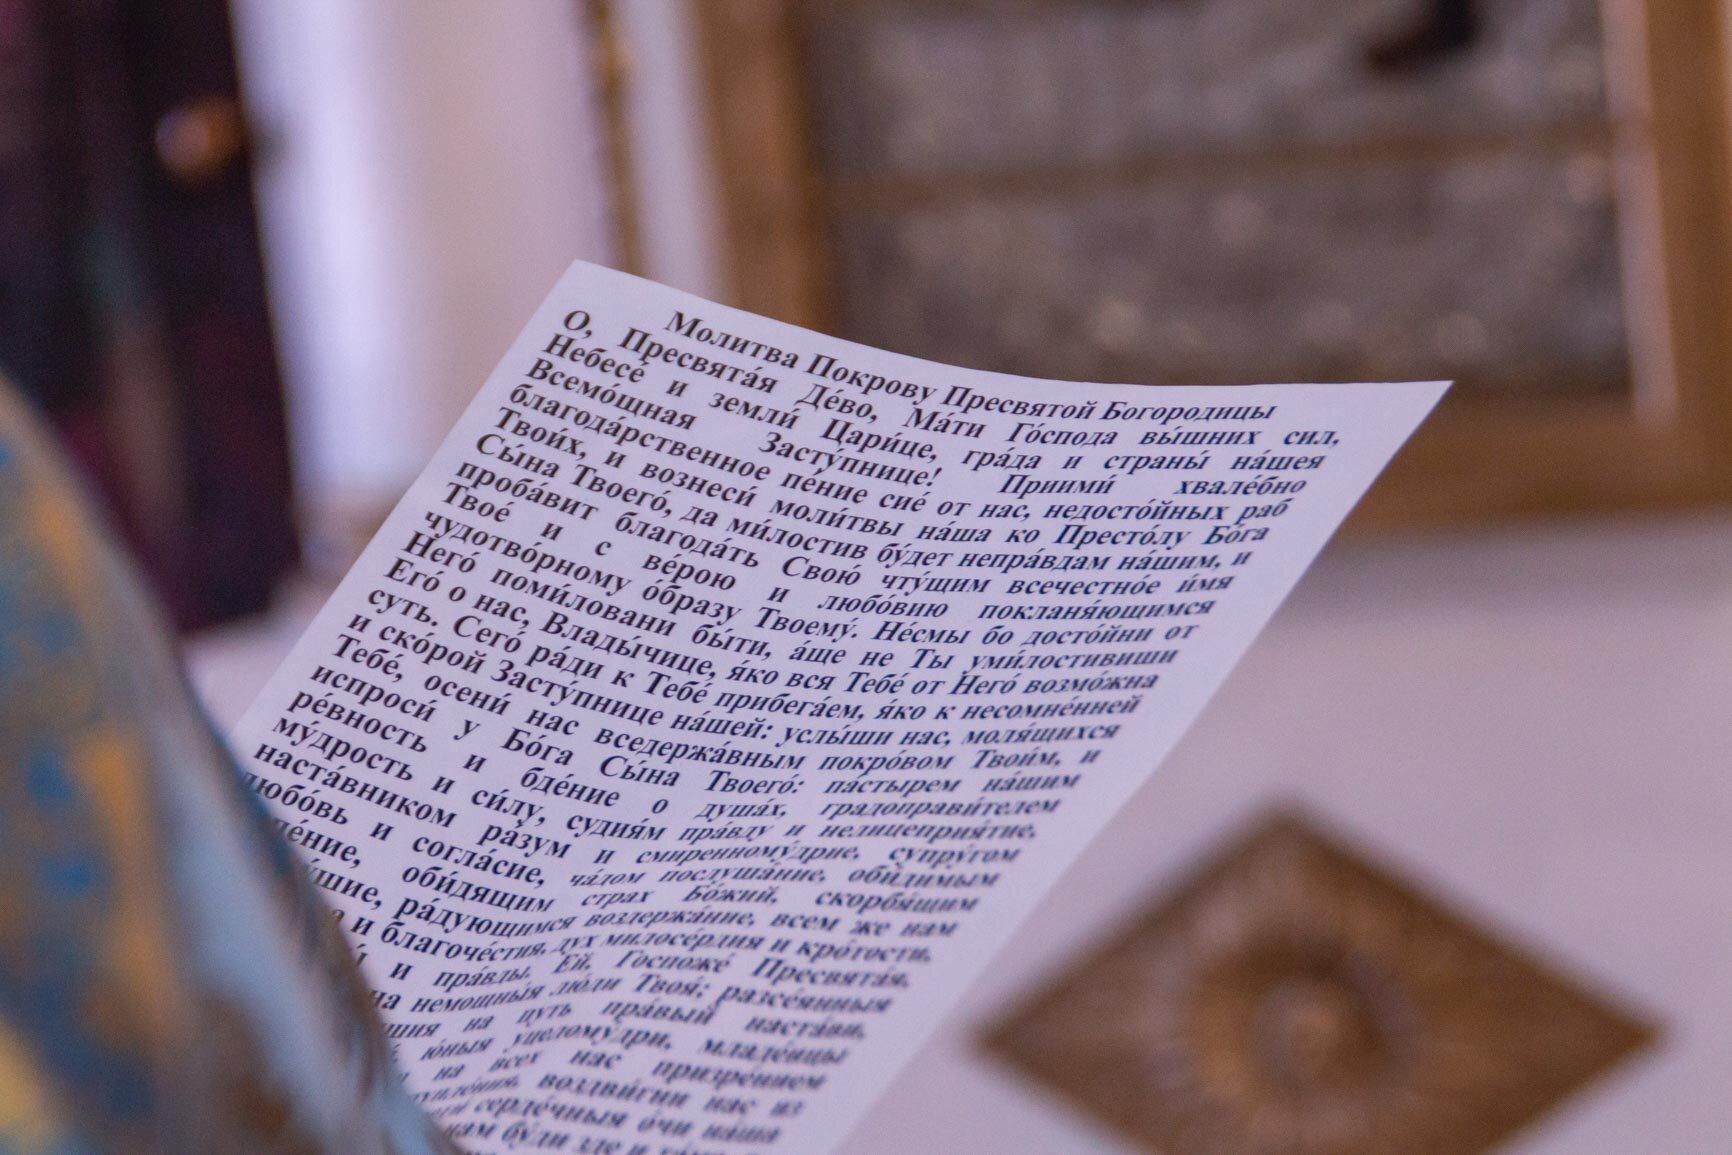 Молитва Покрову Пресвятой Богородицы
О, Пресвята́я Де́во, Ма́ти Го́спода вы́шних сил,
Небесе́ и земли́ Цари́це, гра́да и страны́ на́шея
Всемо́щная Засту́пнице! Приими́ хвале́бно
благода́рственное пе́ние сие́ от нас, недосто́йных раб
Твои́х, и вознеси́ моли́твы на́ша ко Престо́лу Бо́га
Сы́на Твоего́, да ми́лостив бу́дет непра́вдам на́шим, и
проба́вит благода́ть Свою́ чту́щим всечестно́е и́мя
Твое́ и с ве́рою и любо́вию покланя́ющимся
чудотво́рному о́бразу Твоему́. Не́смы бо досто́йни от
Него́ поми́ловани бы́ти, а́ще не Ты уми́лостивиши
Его́ о нас, Влады́чице, я́ко вся Тебе́ от Него́ возмо́жна
суть. Сего́ ра́ди к Тебе́ прибега́ем, я́ко к несомне́нней
и ско́рой Засту́пнице на́шей: услы́ши нас, моля́щихся
Тебе́, осени́ нас вседержа́вным покро́вом Твои́м, и
испроси́ у Бо́га Сы́на Твоего́: па́стырем на́шим
ре́вность и бде́ние о душа́х, градоправи́телем
му́дрость и си́лу, судия́м пра́вду и нелицеприя́тие,
наста́вником ра́зум и смиренному́дрие, супру́гом
любо́вь и согла́сие, ча́дом послуша́ние, оби́димым
ле́ние, оби́дящим страх Бо́жий, скорбя́щим
у́шие, ра́дующимся воздержа́ние, всем же нам
и благоче́стия, дух милосе́рдия и кро́тости,
и пра́вды. Ей, Госпоже́ Пресвята́я,
на немощны́я лю́ди Твоя́; разсе́янныя
шия на путь пра́вый наста́ви,
ю́ныя уцелому́дри, младе́нцы
на всех нас призре́нием
воздви́гни нас из
серде́чныя о́чи на́ша
нам бу́ди зде и